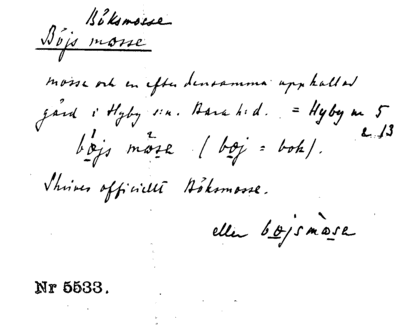 Böksmosse
Böjs mosse
mosse och en efter densamma uppkallad
gård i Hyby s:n. Bara h:d. = Hyby nr 5
2 13
bøjs mose (bøj = bok).
Skrives officiellt Böksmosse.
eller bøjsmòse
Nr 5533.